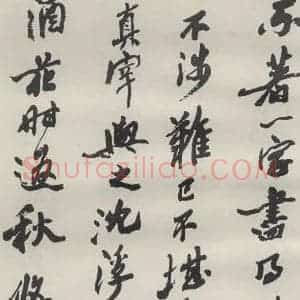 不著一字盡得
不涉難已不堪
真宰與之沈浮
酒花時返秋悠
Shufaziliao.com